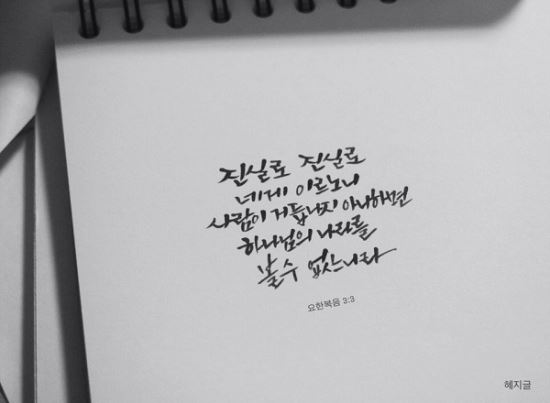 진실로 진실로
네게 이르노니
사람이 거듭나지 아니하면
하나님의 나라를
볼 수 없느니라
요한복음 3:3
혜지글